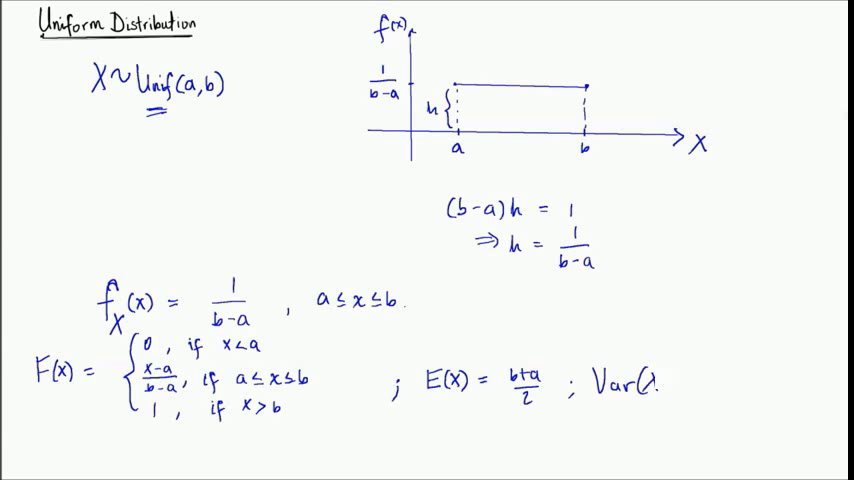 Uniform Distribution
X ~ Unif(a,b)
f(x)
1/(b-a)
h {
a b X
(b-a)h = 1
⇒ h = 1/(b-a)
f_X(x) = 1/(b-a) , a ≤ x ≤ b.
F(x) = { 0 , if x < a
(x-a)/(b-a) , if a ≤ x ≤ b
1 , if x > b
; E(X) = (b+a)/2 ; Var(